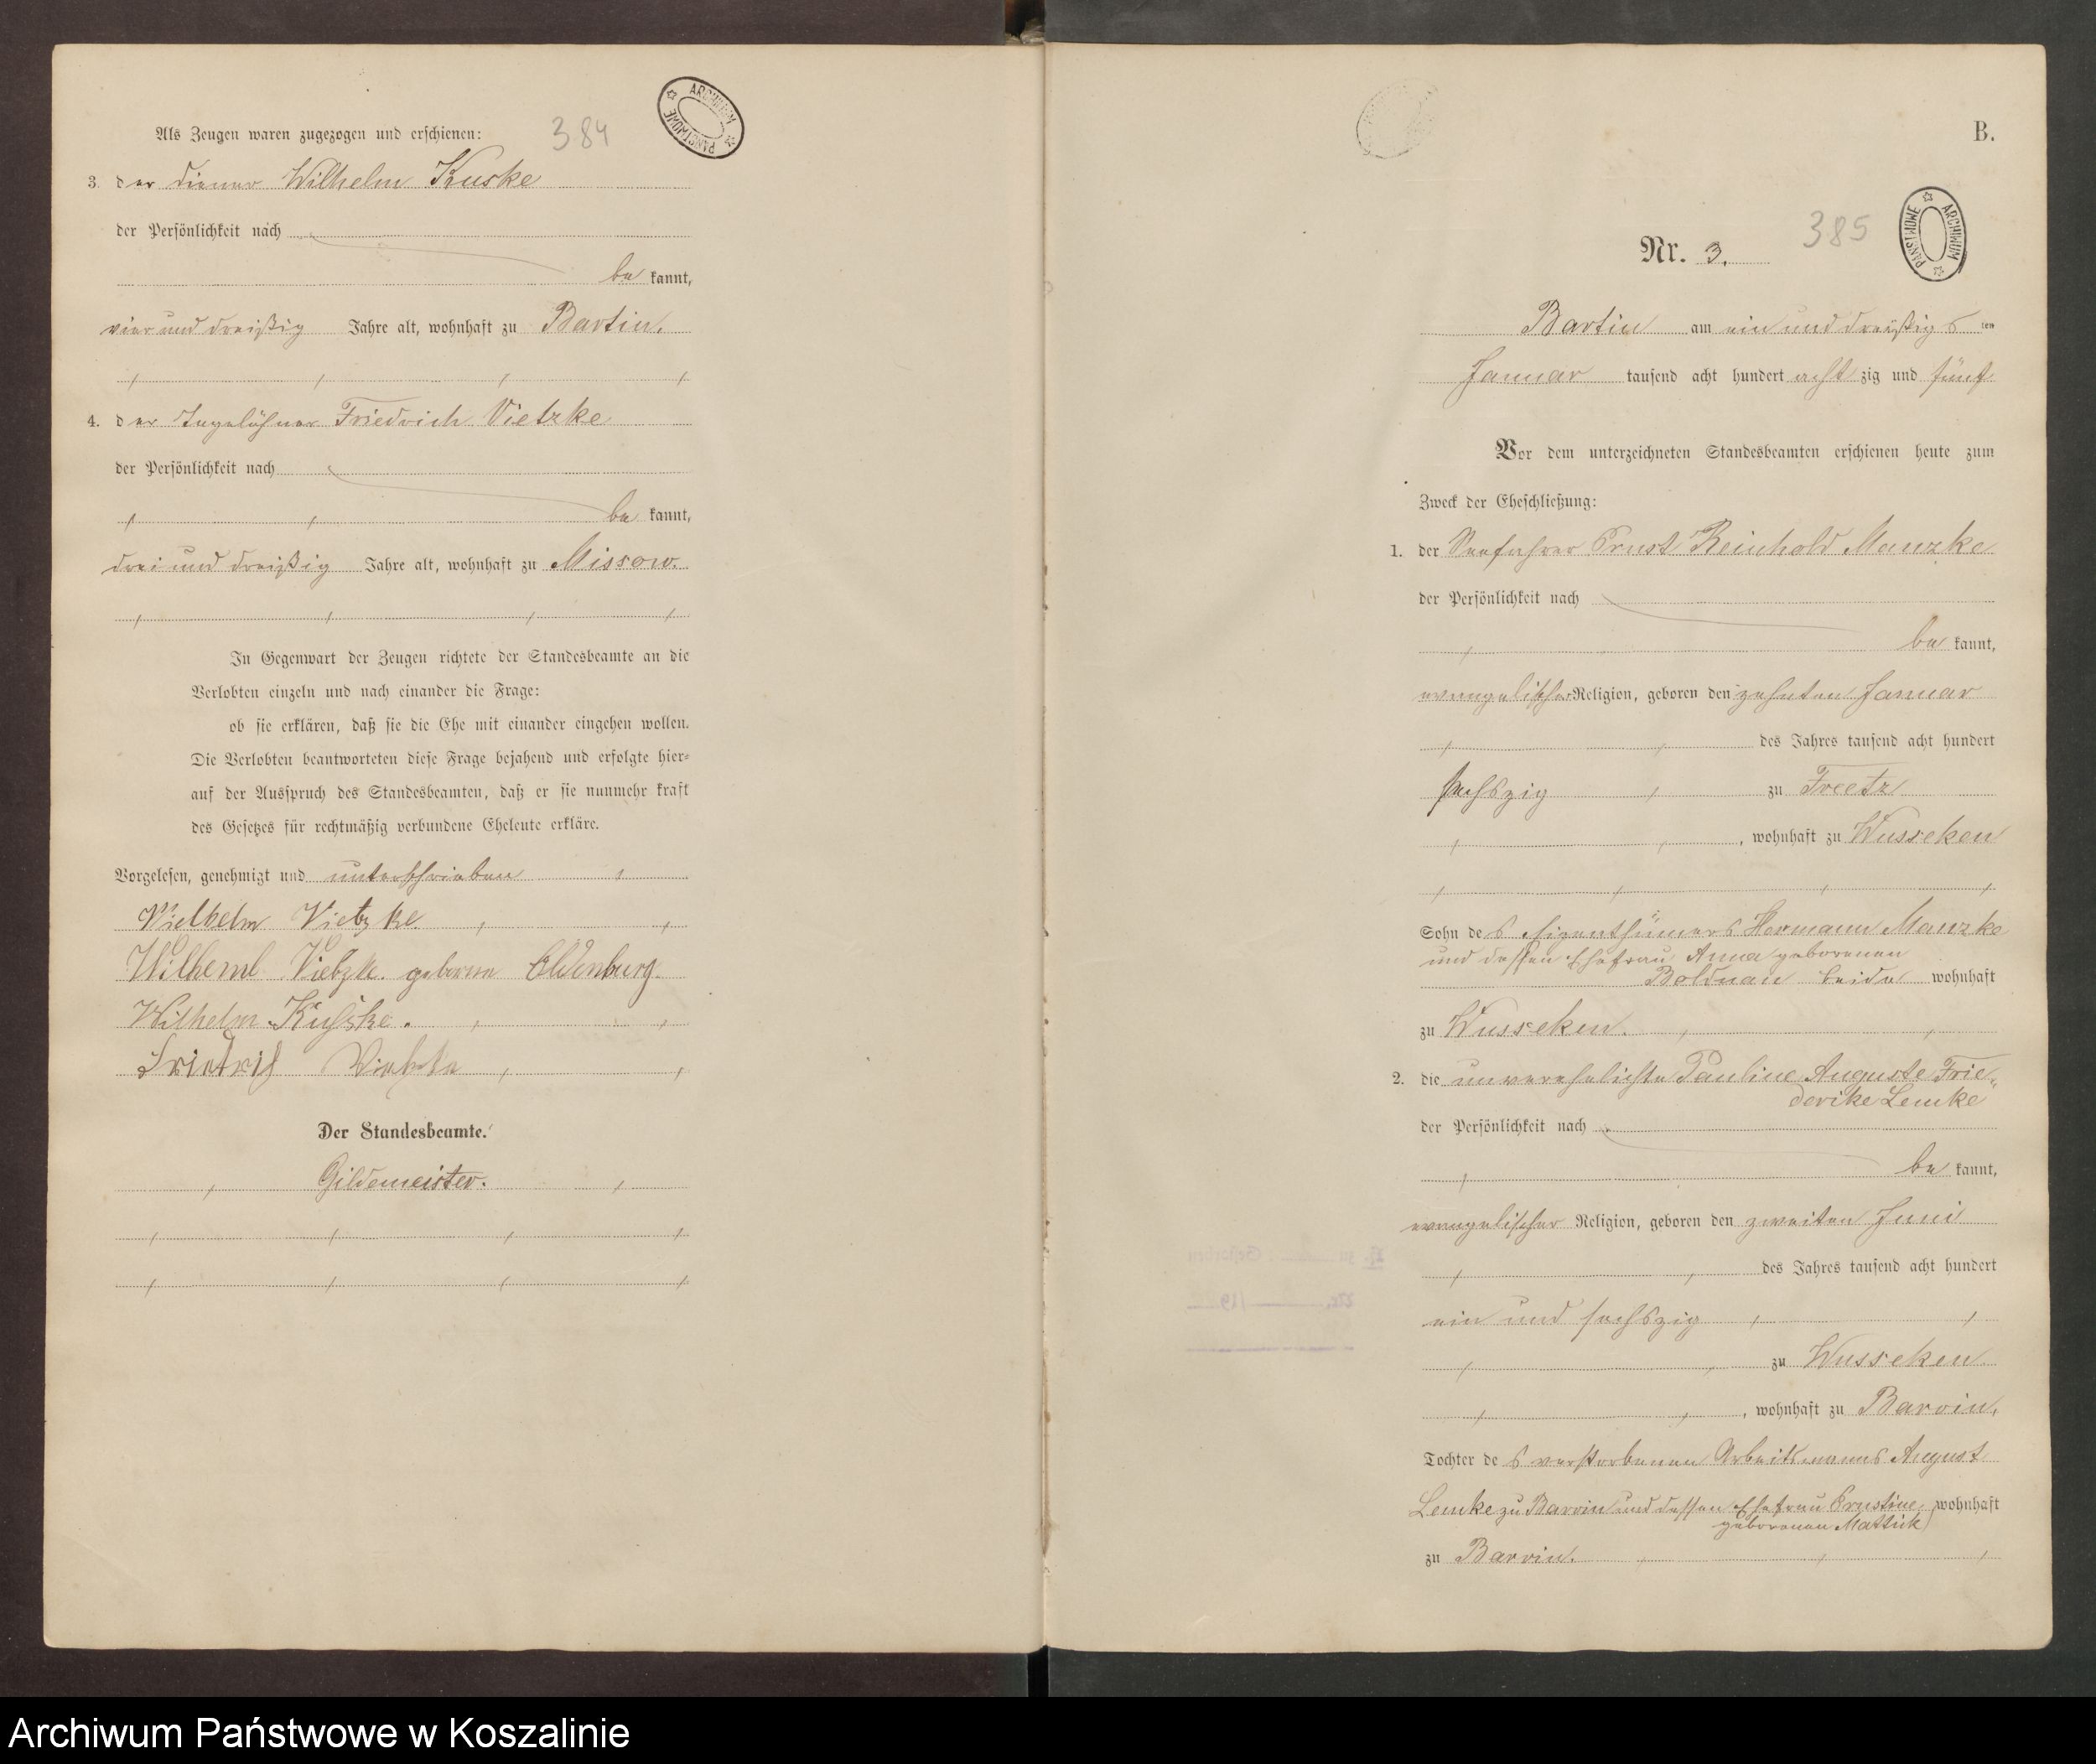 384
ARCHIWUM PAŃSTWOWE
Als Zeugen waren zugezogen und erschienen:
3. der Diener Wilhelm Kuske
der Persönlichkeit nach
be kannt,
vier und dreißig Jahre alt, wohnhaft zu Bartin.
4. der Tagelöhner Friedrich Vietzke
der Persönlichkeit nach
be kannt,
drei und dreißig Jahre alt, wohnhaft zu Missow.
In Gegenwart der Zeugen richtete der Standesbeamte an die
Verlobten einzeln und nach einander die Frage:
ob sie erklären, daß sie die Ehe mit einander eingehen wollen.
Die Verlobten beantworteten diese Frage bejahend und erfolgte hier-
auf der Ausspruch des Standesbeamten, daß er sie nunmehr kraft
des Gesetzes für rechtmäßig verbundene Eheleute erkläre.
Vorgelesen, genehmigt und unterschrieben
Wielhelm Vietzke.
Wilheml Vietzke. geborene Oldenburg.
Wilhelm Kuske.
Friedrich Vietzke
Der Standesbeamte.
Gildemeister.
B.
385
ARCHIWUM PAŃSTWOWE
Nr. 3.
Bartin am ein und dreißig s ten
Januar tausend acht hundert acht zig und fünf
Vor dem unterzeichneten Standesbeamten erschienen heute zum
Zweck der Eheschließung:
1. der Seefahrer Ernst Reinhold Manzke
der Persönlichkeit nach
be kannt,
evangelischer Religion, geboren den zehnten Januar
des Jahres tausend acht hundert
sechszig zu Treetz
, wohnhaft zu Wusseken
Sohn de s Eigenthümers Hermann Manzke
und dessen Ehefrau Anna geborenen
Boldnan beide wohnhaft
zu Wusseken.
2. die unverehelichte Pauline Auguste Frie-
derike Lemke
der Persönlichkeit nach
be kannt,
evangelischer Religion, geboren den zweiten Juni
des Jahres tausend acht hundert
ein und sechszig
zu Wusseken
, wohnhaft zu Barvin,
Tochter de s verstorbenen Arbeitsmanns August
Lemke zu Barvin und dessen Ehefrau Ernstine, wohnhaft
geborenen Mattick
zu Barvin.
Archiwum Państwowe w Koszalinie